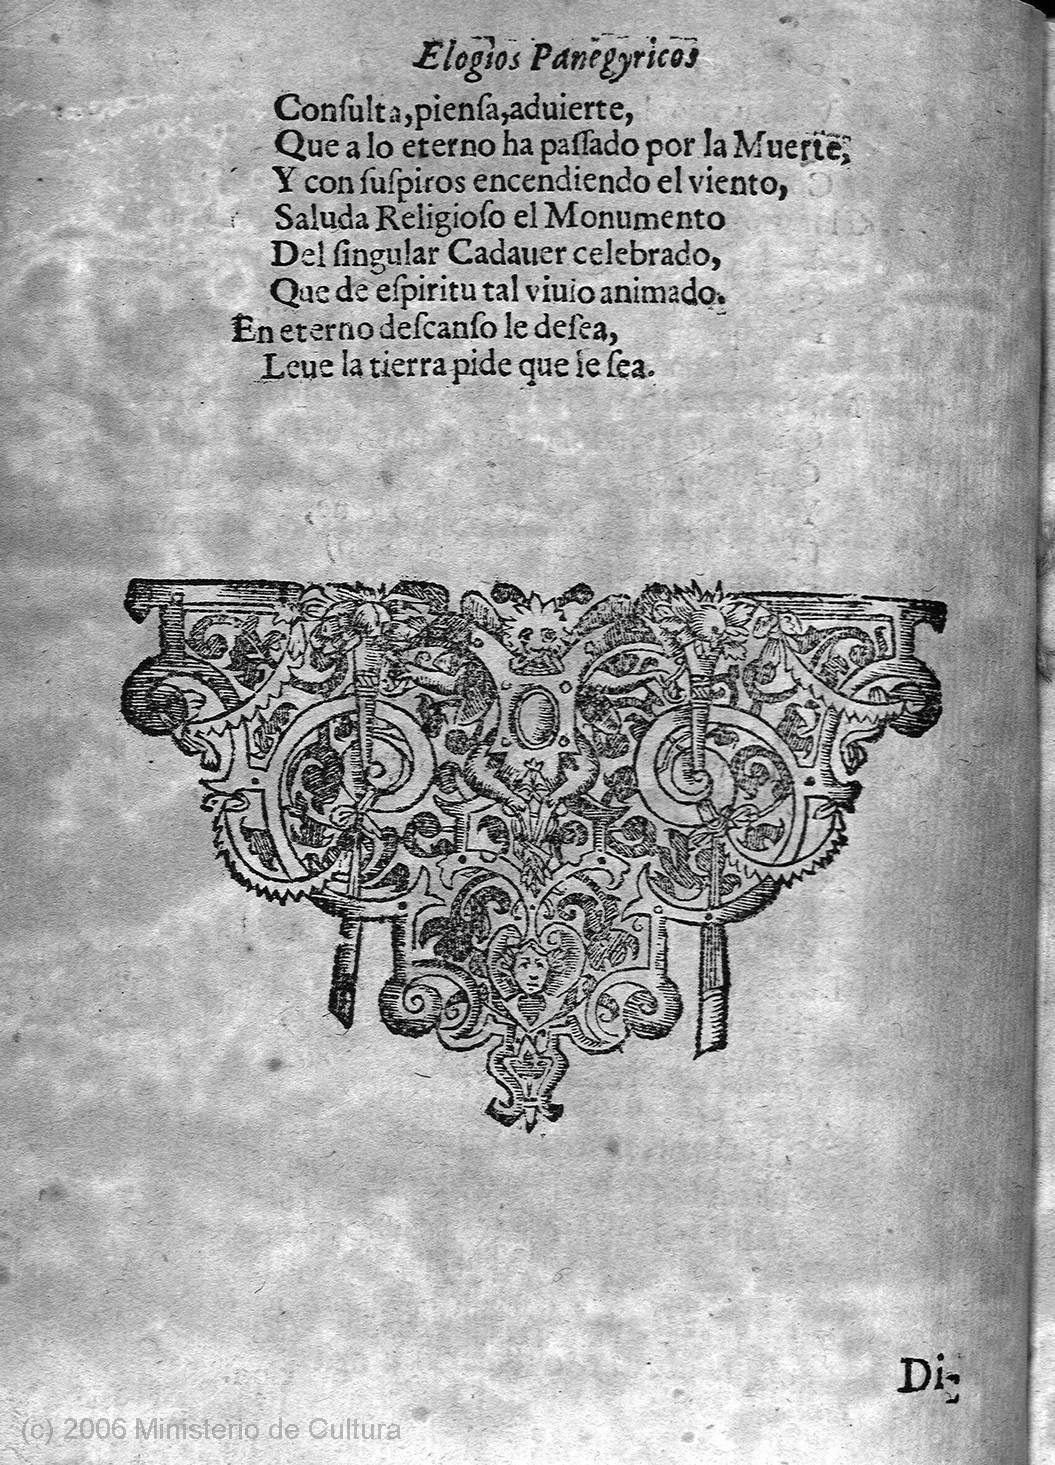 Elogios Panegyricos
Conſulta, pienſa, aduierte,
Que a lo eterno ha paſſado por la Muerte,
Y con ſuſpiros encendiendo el viento,
Saluda Religioſo el Monumento
Del ſingular Cadauer celebrado,
Que de eſpiritu tal viuio animado.
En eterno deſcanſo le deſea,
Leue la tierra pide que le ſea.
Di-
(c) 2006 Ministerio de Cultura